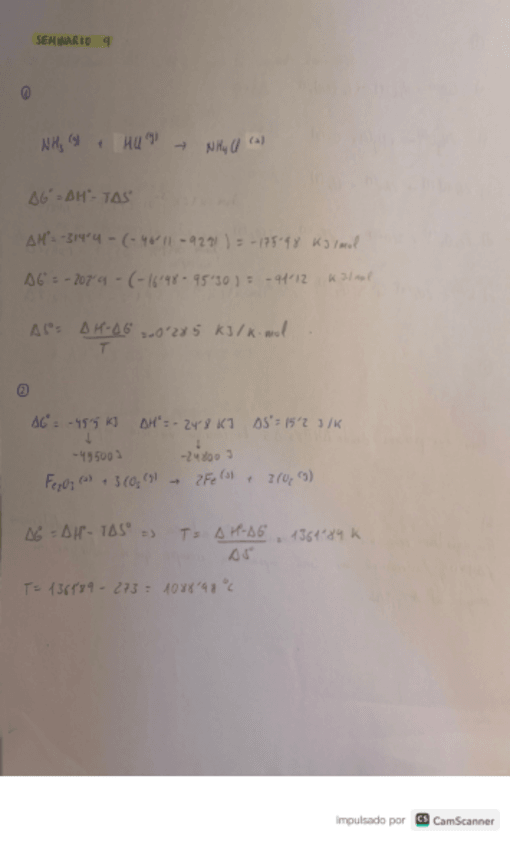 SEMINARIO 9
①
NH₃ (g) + HCl (g) → NH₄Cl (s)
ΔG° = ΔH° - TΔS°
ΔH° = -314'4 - (-46'11 - 92'31) = -175'98 KJ/mol
ΔG° = -202'9 - (-16'48 - 95'30) = -91'12 KJ/mol
ΔS° = (ΔH° - ΔG°) / T = -0'285 KJ/K·mol
②
ΔG° = -45'5 KJ ΔH° = -24'8 KJ ΔS° = 15'2 J/K
↓ ↓
-45500 J -24800 J
Fe₂O₃ (s) + 3CO (g) → 2Fe (s) + 3CO₂ (g)
ΔG° = ΔH° - TΔS° => T = (ΔH° - ΔG°) / ΔS° = 1361'84 K
- 273 = 1088'48 °C
impulsado por CS CamScanner